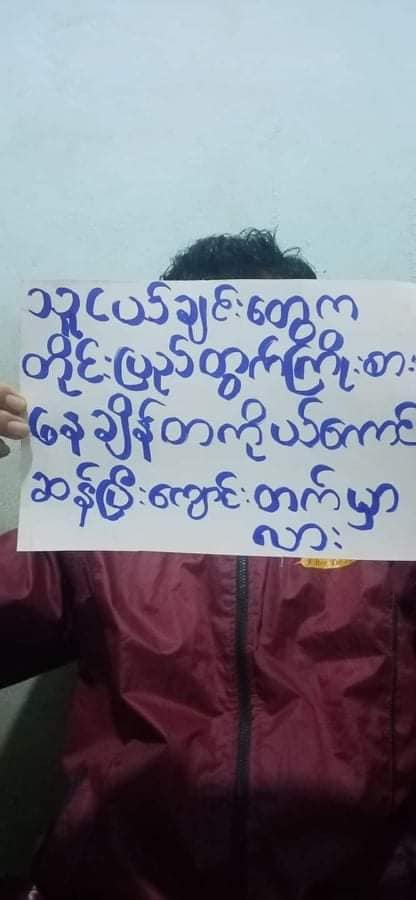 သူငယ်ချင်းတွေက
တိုင်းပြည်တွက်ကြိုးစား
နေချိန်တကိုယ်ကောင်
ဆန်ပြီးကျောင်းတက်မှာ
လား